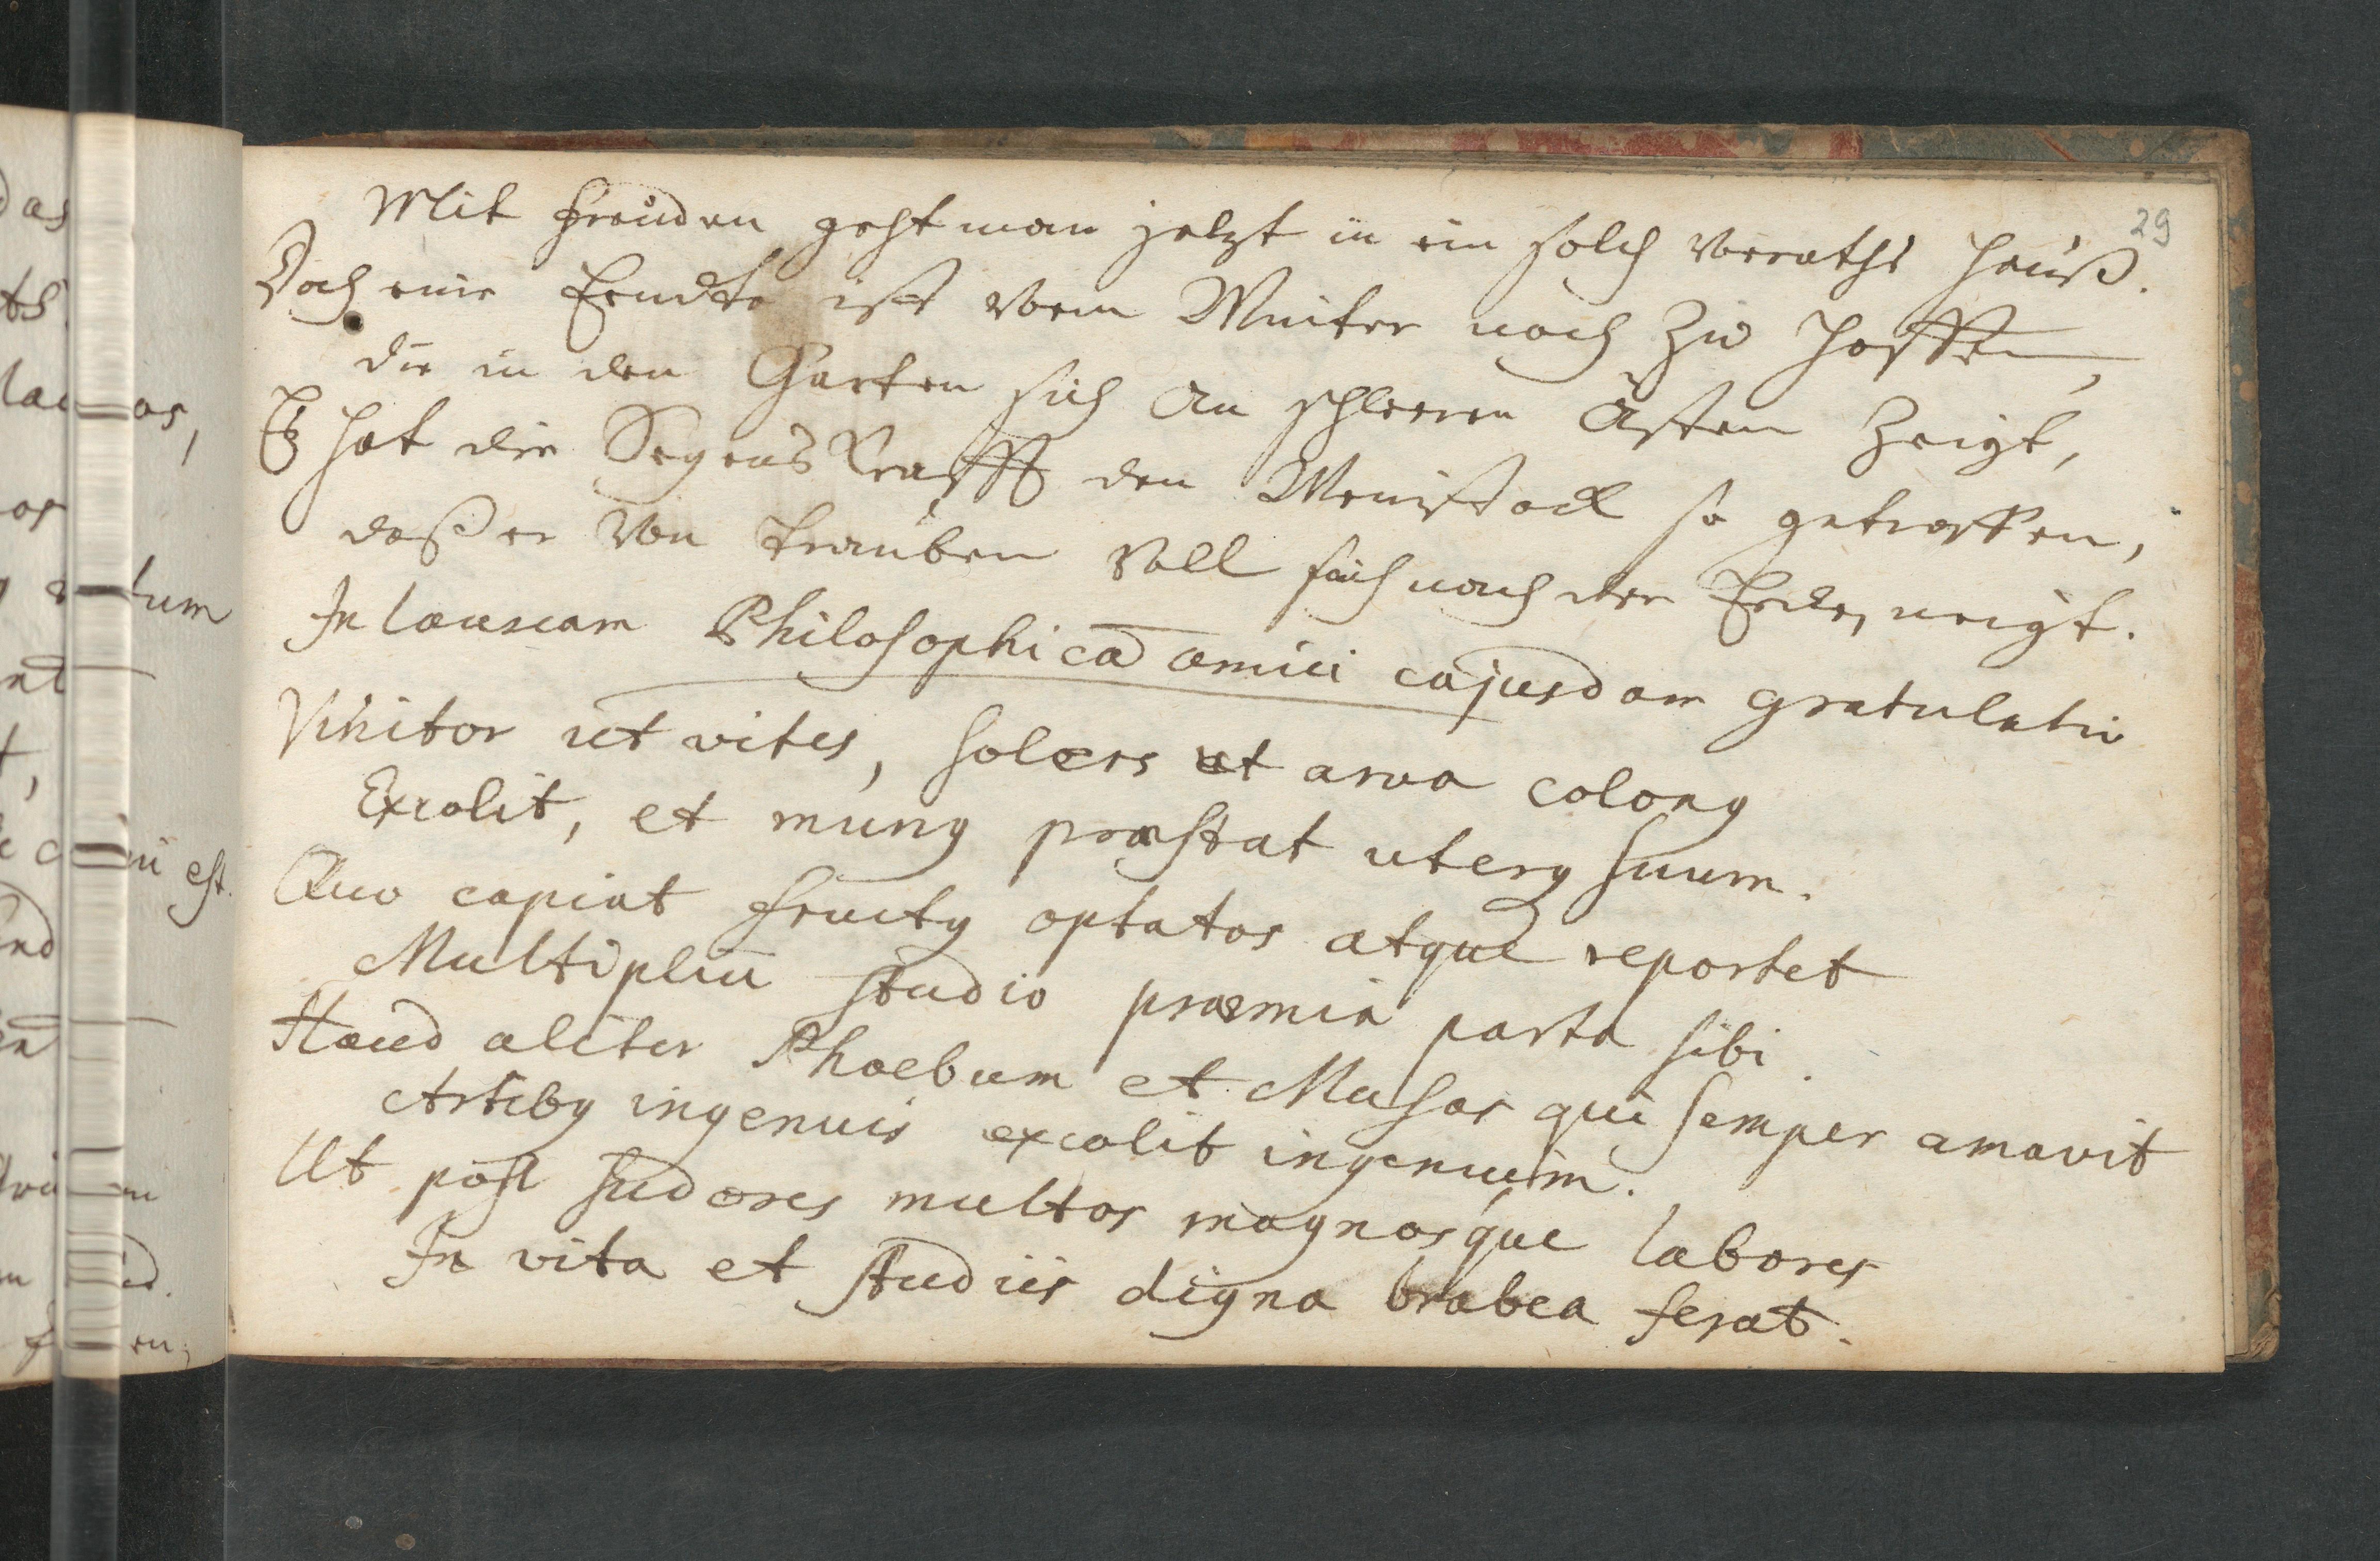 29
Mit freuden geht man jetzt in ein solch Vorraths hauß.
Doch eine Erndte ist vorm Winter noch zu hoffen,
die in den Gärten sich an Ästen zeigt,
Es hat die Segens Krafft den Weinstock so getroffen,
daß er von trauben voll sich nach der Erden neigt.
In lauream Philosophicā amici cujusdam gratulatio
Vinitor ut vites, solers ut arva colonꝰ
Excolit, et munꝰ præstat uterqꝫ suum.
Quo capiat fructꝰ optatos atque reportet
Multiplici studio præmia parta sibi.
Haud aliter Phoebum et Musas qui semper amavit
Artibꝰ ingenuis excolit ingenium.
Ut post sudores multos magnosque labores
In vita et studiis digna brabea ferat.
as
ts
os,
os
tum
est.